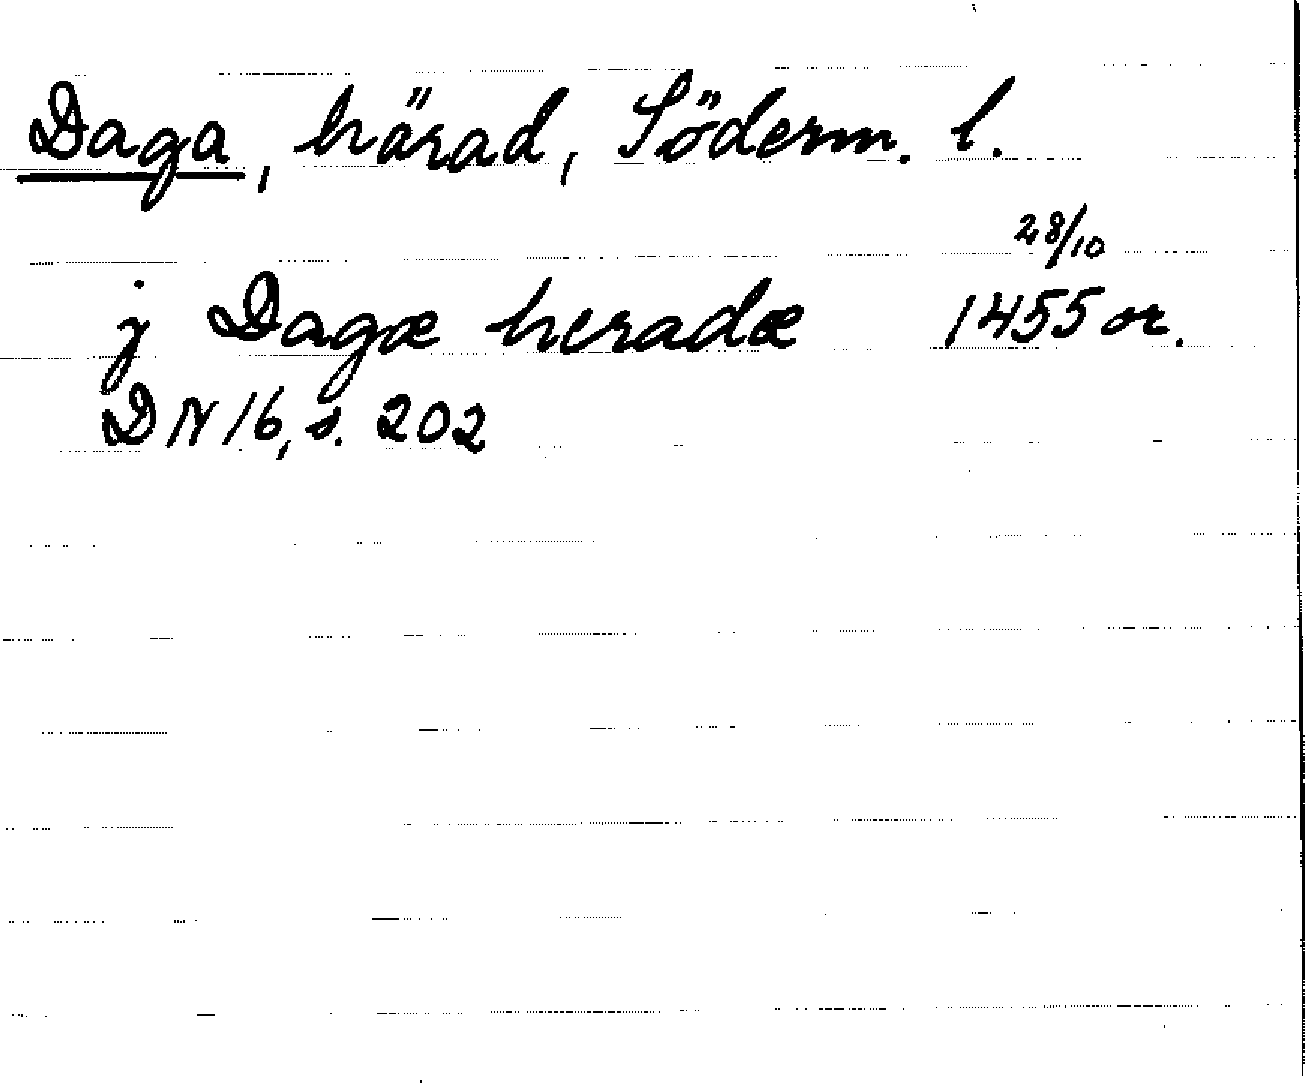 Daga, härad, Söderm. l.
28/10
j Dagæ heradæ 1455 or.
DN 16, s. 202